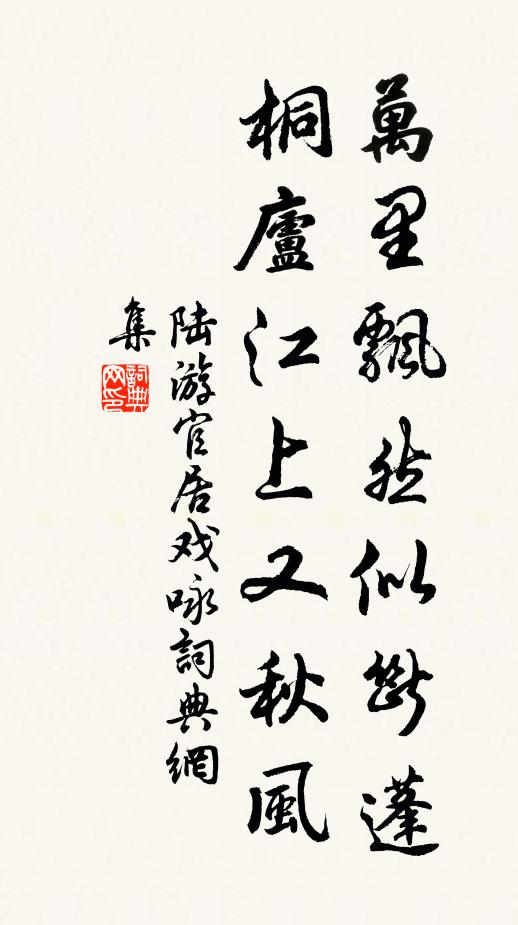 萬里飄然似斷蓬
桐廬江上又秋風
陆游官居戏咏詞典網
集
詞典
网印